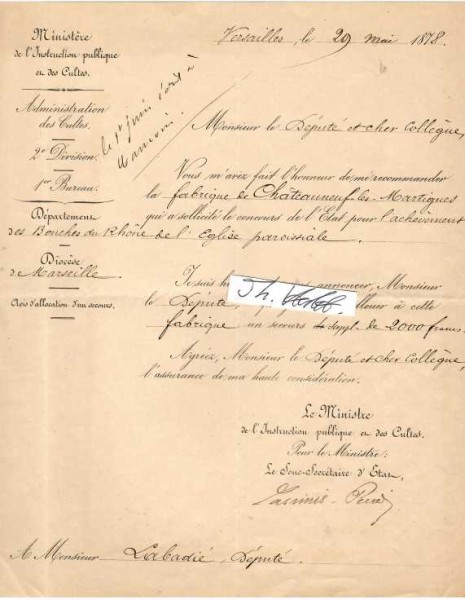 Ministère
de l'Instruction publique
et des Cultes.
Administration
des Cultes.
2e Division.
1er Bureau.
Département
des Bouches du Rhône
Diocèse
de Marseille.
Avis d'allocation d'un secours.
Versailles, le 29 mai 1878.
le 1er juin
Monsieur le Député et cher Collègue,
Vous m'avez fait l'honneur de me recommander
la fabrique de Châteauneuf-les-Martigues
qui a sollicité le concours de l'Etat pour l'achèvement
de l'Eglise paroissiale.
Je suis annoncer, Monsieur
le Député, à cette
fabrique un secours de 2000 francs.
Agréez, Monsieur le Député et cher Collègue,
l'assurance de ma haute considération.
Le Ministre
de l'Instruction publique et des Cultes.
Pour le Ministre:
Le Sous-Secrétaire d'Etat,
A Monsieur Labadié, Député.